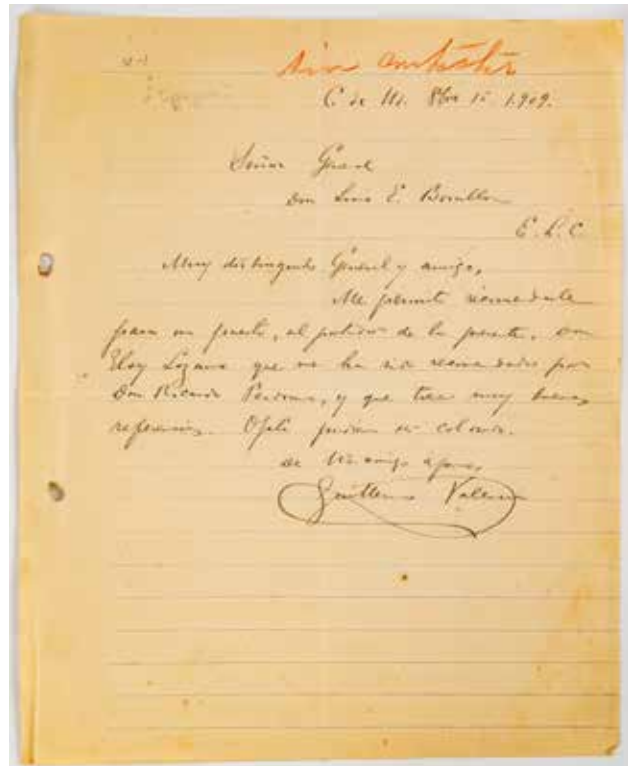 sin contestar
C. de Ud. 8bre 15 1.909.
Señor General
Don Luis E. Bonilla
E. L. C.
Muy distinguido General y amigo,
Me permito recomendarle
para un puesto, al portador de la presente, don
Eloy Lozano que me ha sido recomendado por
Don Ricardo Perdomo, y que trae muy buenas
referencias. Ojalá pudiera ser colocado.
de Ud. amigo afmo.
Guillermo Valencia